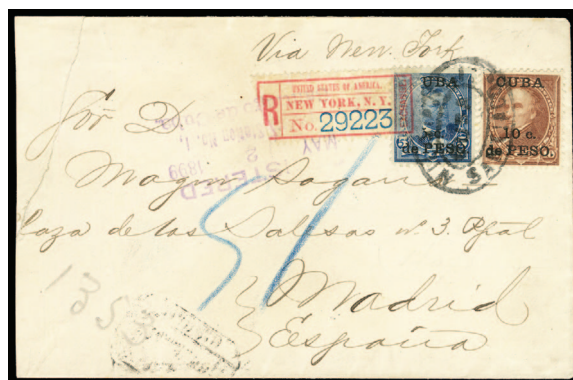 Via New York
UNITED STATES OF AMERICA.
R
NEW YORK, N.Y.
No. 29223
UBA
de PESO
CUBA
10 c.
de PESO
Sor D.
STERED
MAY
2
1899
Station No. 1,
Magin Sagarra
Plaza de las Salesas nº 3. Ppal
Madrid
España